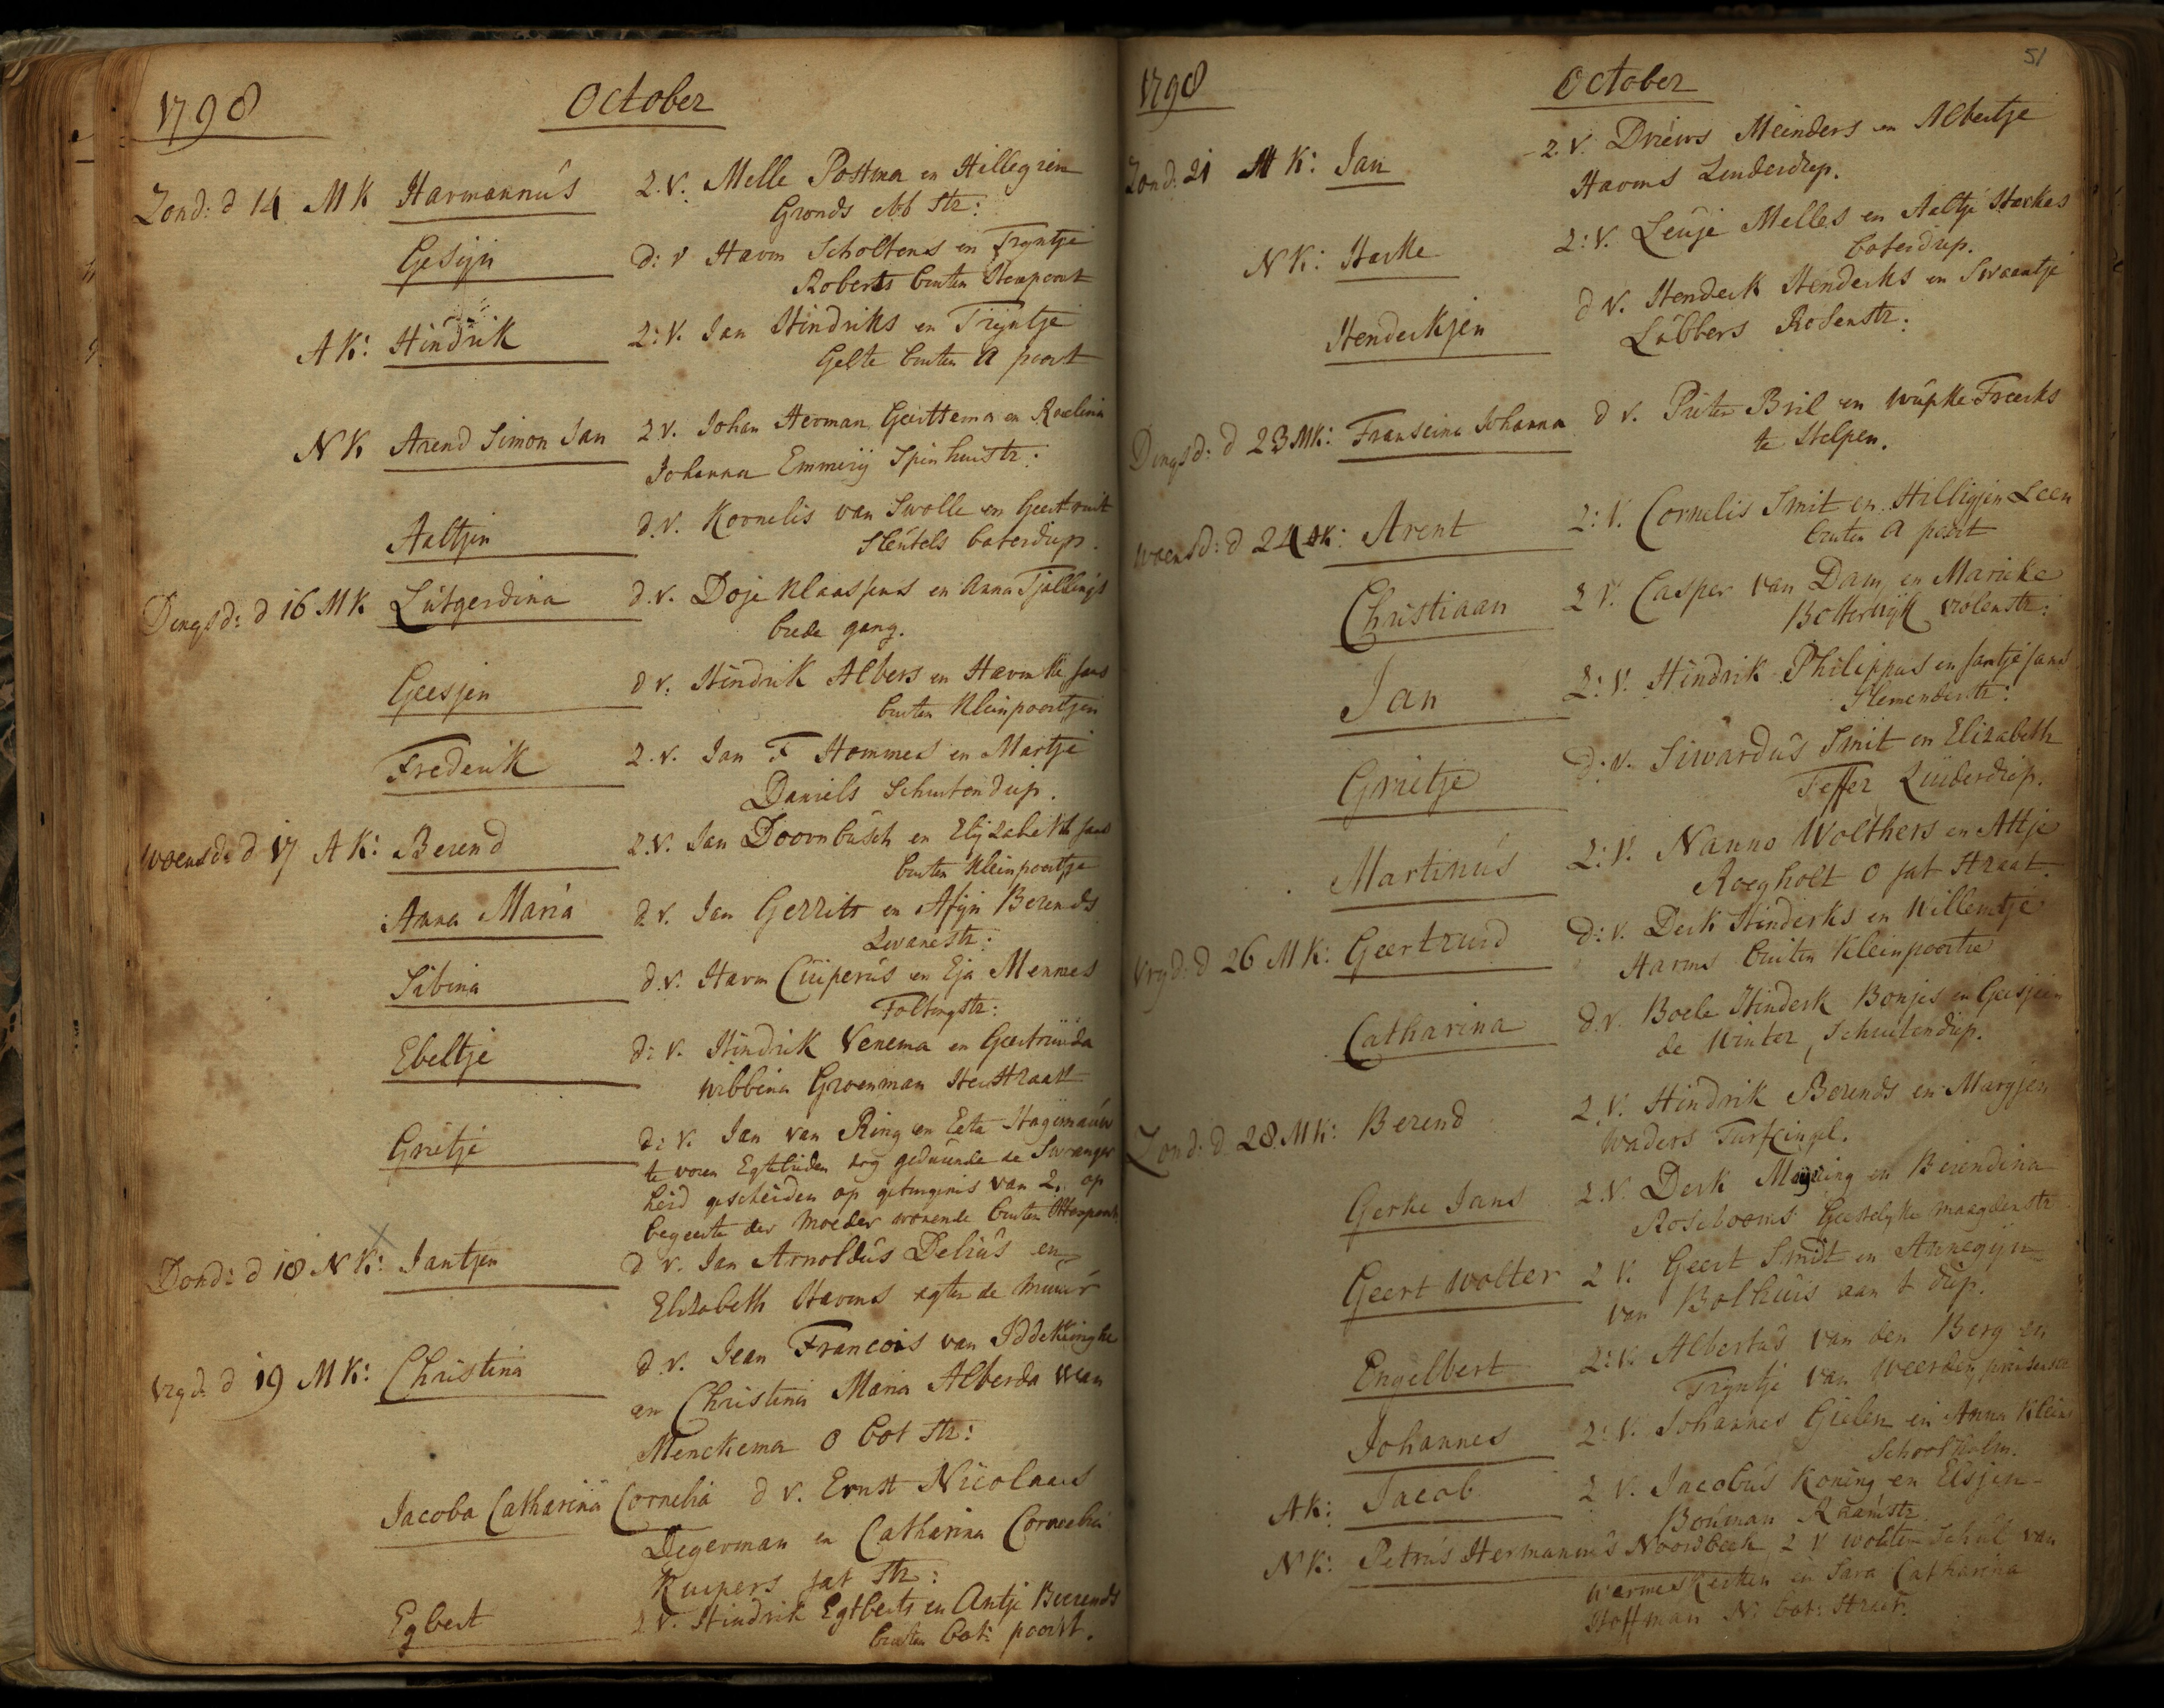 1798 October
Zond: d 14 M K Harmannus Z. V. Melle Postma en Hillegien
Gronds Ebb Str:
Gesijn d: v Harm Scholtens en Tryntje
Roberts buiten Sterpoort
A K: Hindrik Z: V. Jan Hindriks en Trijntje
Gelte buiten A poort
N K Arend Simon Jan Z V. Johan Herman Geerttema en Roelina
Johanna Emmerij Spinhuistr:
Aaltjen d. V. Kornelis van Swolle en Geertruit
Sleutels boterdiep.
Dingsd: d 16 M K Lutgerdina d. v. Doje Klaassens en Anna Tjallings
brede gang.
Geesjen d v. Hindrik Albers en Harmke Jans
buiten Kleinpoortjen
Frederik Z. v. Jan F Hommes en Martje
Daniels Schuitendiep.
Woensd: d 17 A K: Berend Z. V. Jan Doornbusch en Elijzabeth Jans
buiten Kleinpoortje
Anna Maria d v. Jan Gerrits en Afijn Berends
Zwanestr:
Sibina d. v. Harm Cuiperus en Eja Mennes
Foltingstr:
Ebeltje d: v. Hindrik Venema en Geertruida
Wibbina Groenman Heerstraat
Grietje d: v. Jan van Ring en Eeta Hagenauw
te voren Egtelieden dog geduurende de Swanger
heid gescheiden op getuigenis van 2, op
begeerte der Moeder wonende buiten Sterpoort
Dond: d 18 N K: Jantjen d v. Jan Arnoldus Delius en
Elizabeth Harms agter de Muur
Vryd. d 19 M K: Christina d. v. Jean Francois van Iddekinghe
en Christina Maria Alberda van
Menckema O bot Str:
Jacoba Catharina Cornelia d v. Ernst Nicolaas
Degerman en Catharina Cornelia
Kuipers jat Str:
Egbert Z V. Hindrik Egtberts en Antje Beerends
buiten Bot: poort.
51
1798 October
Zond: 21 M K: Jan Z. V. Driews Meinders en Albertje
Harms Zuiderdiep.
N K: Harke Z: V. Leuje Melles en Aaltje Harkes
boterdiep.
Henderkjen d V. Henderk Henderks en Swaantje
Lubbers Rosenstr:
Dingsd: d 23 M K: Franseina Johanna d v. Pieter Bril en Wupke Freerks
te Helpen.
Woensd: d 24 A K: Arent Z: V. Cornelis Smit en Hilligjen Leen
buiten A poort
Christiaan Z V. Casper van Dam en Marieke
Botterwijk Violenstr:
Jan Z: V. Hindrik Philippus en Jantje Jans
Slemenderstr:
Grietje d: v. Siwardus Smit en Elizabeth
Feffer Zuiderdiep.
Martinus Z: V. Nanno Wolthers en Attje
Roegholt O jat Straat.
Vryd: d 26 M K: Geertruid d: v. Derk Hinderks en Willemtje
Harms buiten Kleinpoortie
Catharina d. v. Boele Hinderk Bonjes en Geesjien
de Winter, Schuitendiep.
Zond: d. 28. M K: Berend Z. V. Hindrik Berends en Margjen
Waders Turfcingel.
Gerke Jans Z. V. Derk Meijring en Berendina
Rosebooms Geestelyke maagdenstr
Geert Wolter Z V. Geert Smidt en Annegijn
van Bolhuis aan t diep.
Engelbert Z: V. Albertus van den Berg en
Tryntje van Weerden prinsenstr
Johannes Z: V. Johannes Gielen en Anna Kleins
Schoolholm.
A K: Jacob Z V. Jacobus Koning en Elsjen
Bouman Raamstr.
N K: Petrus Hermannus Noordbeek Z V Wolter Schul van
Warmeskerken en Sara Catharina
Hoffman N: bot: Straat.